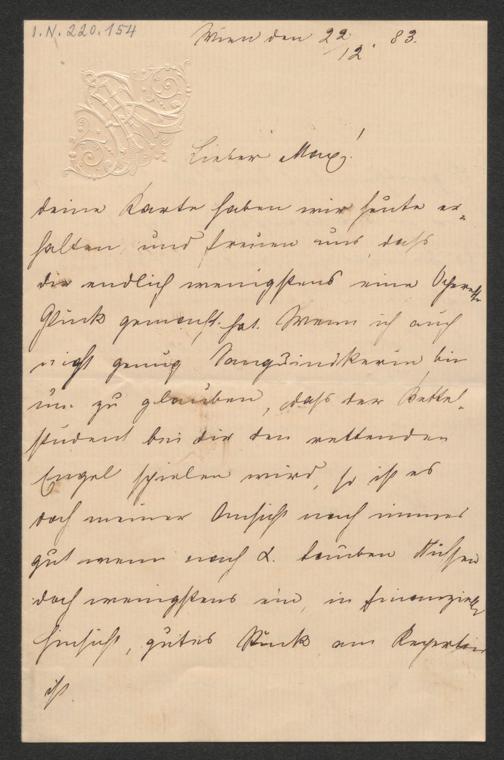 I.N. 220.154
Wien den 22/12. 83.
Lieber Max!
deine Karte haben wir heute er-
halten und freuen uns, dass
dir endlich wenigstens eine Operette
Glück gemacht hat. Wenn ich auch
nicht genug Sanguinikerin bin
um zu glauben, dass der Bettel-
student bei dir den rettenden
Engel spielen wird, so ist es
doch meiner Ansicht nach immer
gut wenn nach d. tauben Nüssen
doch wenigstens ein, in finanzieller
Hinsicht, gutes Stück am Repertoir
ist